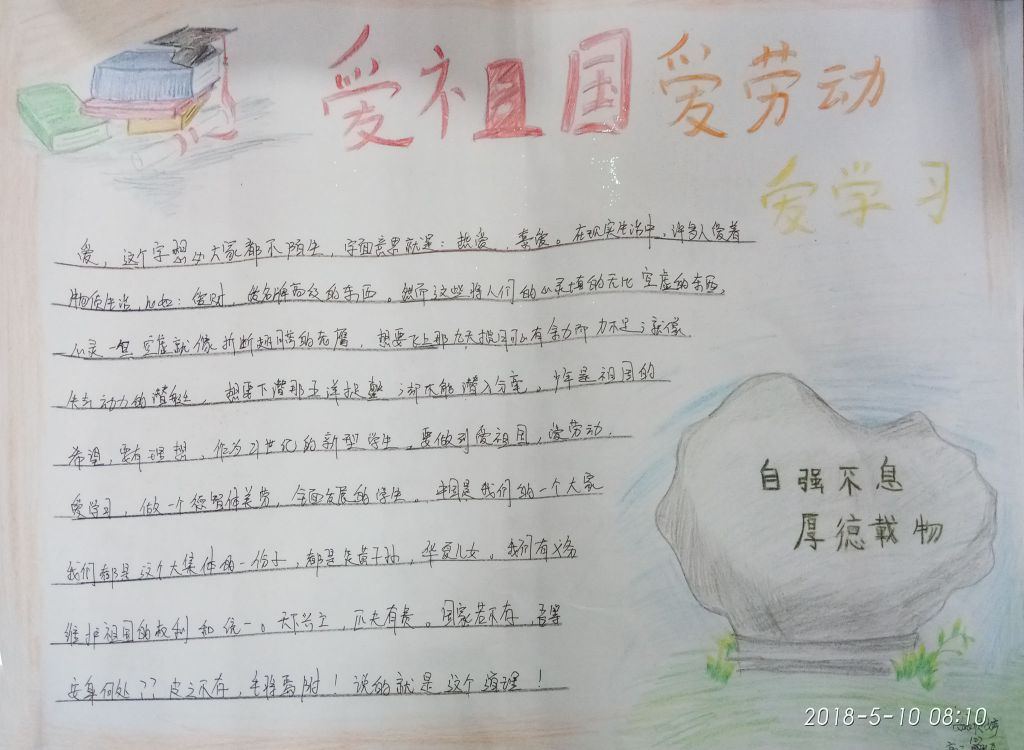 爱祖国爱劳动
爱学习
爱,这个字想必大家都不陌生,字面意思就是:热爱,喜爱。在现实生活中,许多人爱着
物质生活,比如:爱财,爱名牌高级的东西。然而这些将人们的心灵填的无比空虚的东西,
心灵一旦空虚就像折断翅膀的老鹰,想要飞上那九天揽月可心有余力而力不足;就像
失去动力的潜艇,想要下潜那五洋捉鳖;却不能潜入分毫。少年是祖国的
希望,要有理想,作为21世纪的新型学生,要做到爱祖国,爱劳动,
爱学习,做一个德智体美劳,全面发展的学生。中国是我们的一个大家
我们都是这个大集体的一份子,都是炎黄子孙,华夏儿女。我们有义务
维护祖国的权利和统一。天下兴亡,匹夫有责。国家若不存,吾等
安身何处??皮之不存,毛将焉附!说的就是这个道理!
自强不息
厚德载物
2018-5-10 08:10